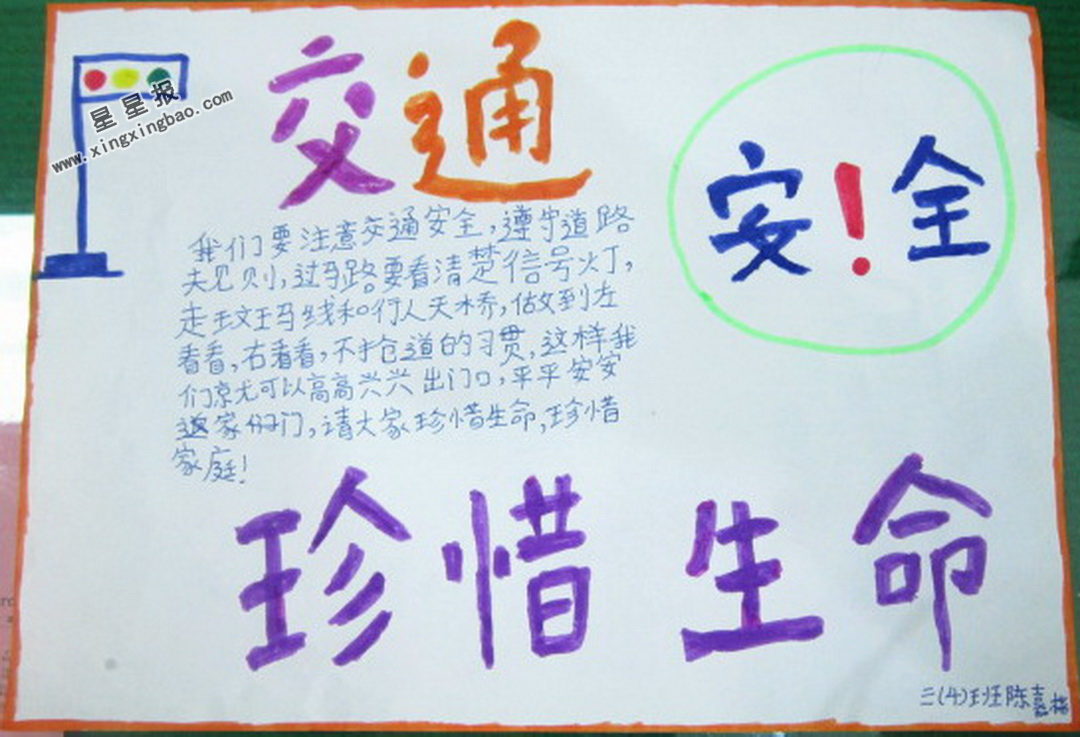 交通
安!全
星星报
www.xingxingbao.com
我们要注意交通安全,遵守道路
夫见则,过马路要看清楚信号灯,
走玟王马线和行人天桥,做到左
看看,右看看,不抢道的习贯,这样我
们京尤可以高高兴兴出门口,平平安安
返家份门,请大家珍惜生命,珍惜
家庭!
珍惜生命
三(4)班陈嘉